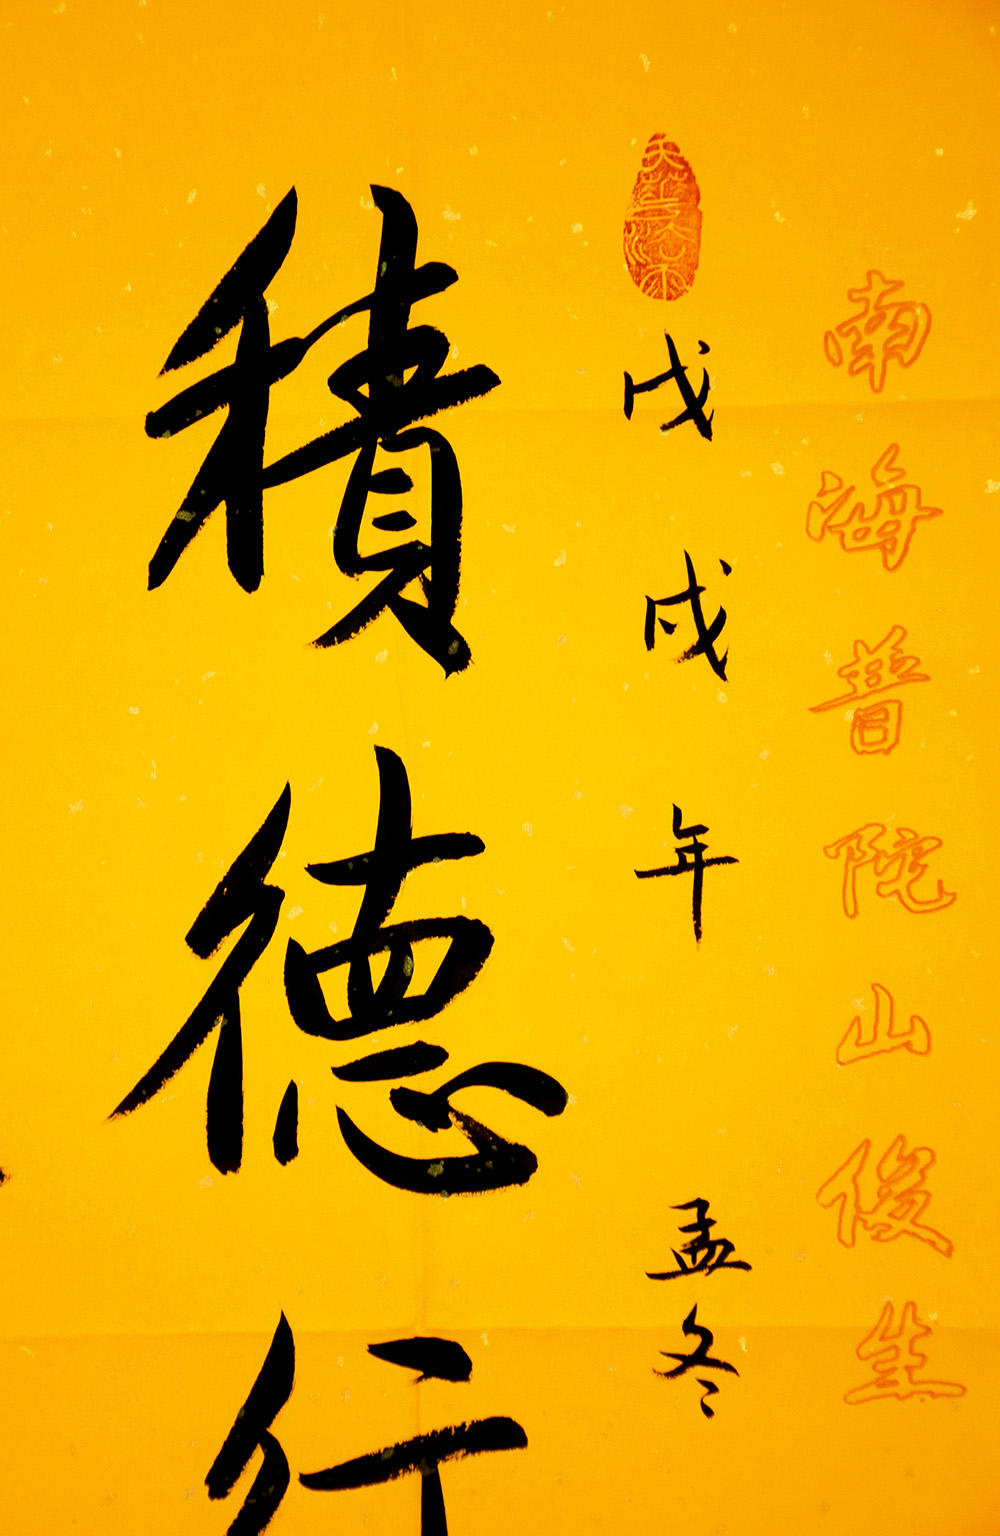 南海普陀山俊生
戊戌年 孟冬
積德行